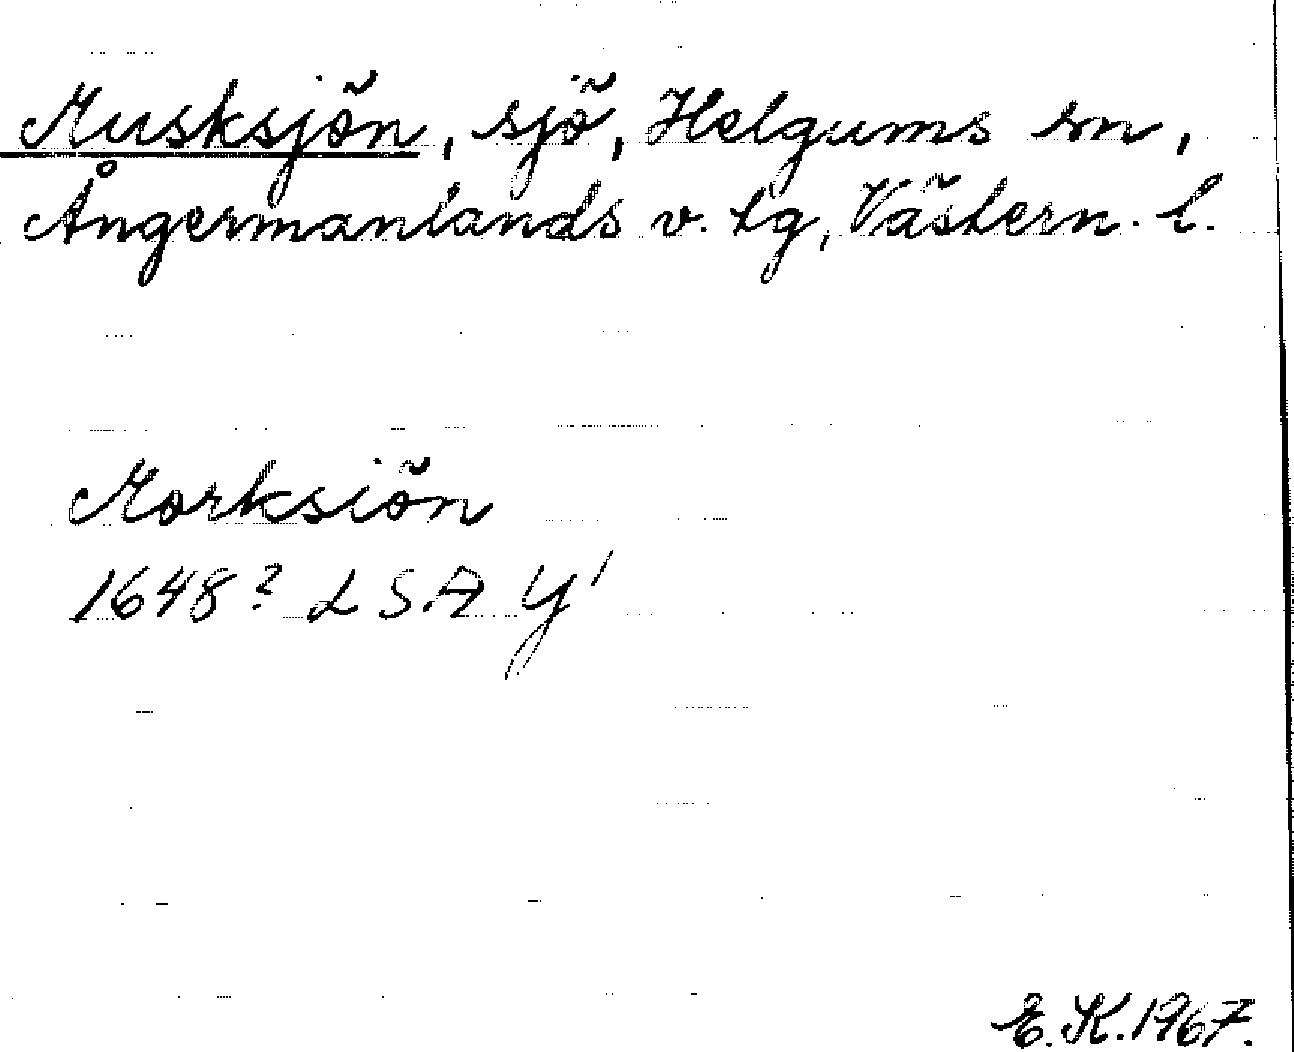 Musksjön, sjö, Helgums sn,
Ångermanlands v. tg, Västern. l.
Morksiön
1648? LSA Y1
E.K. 1967.